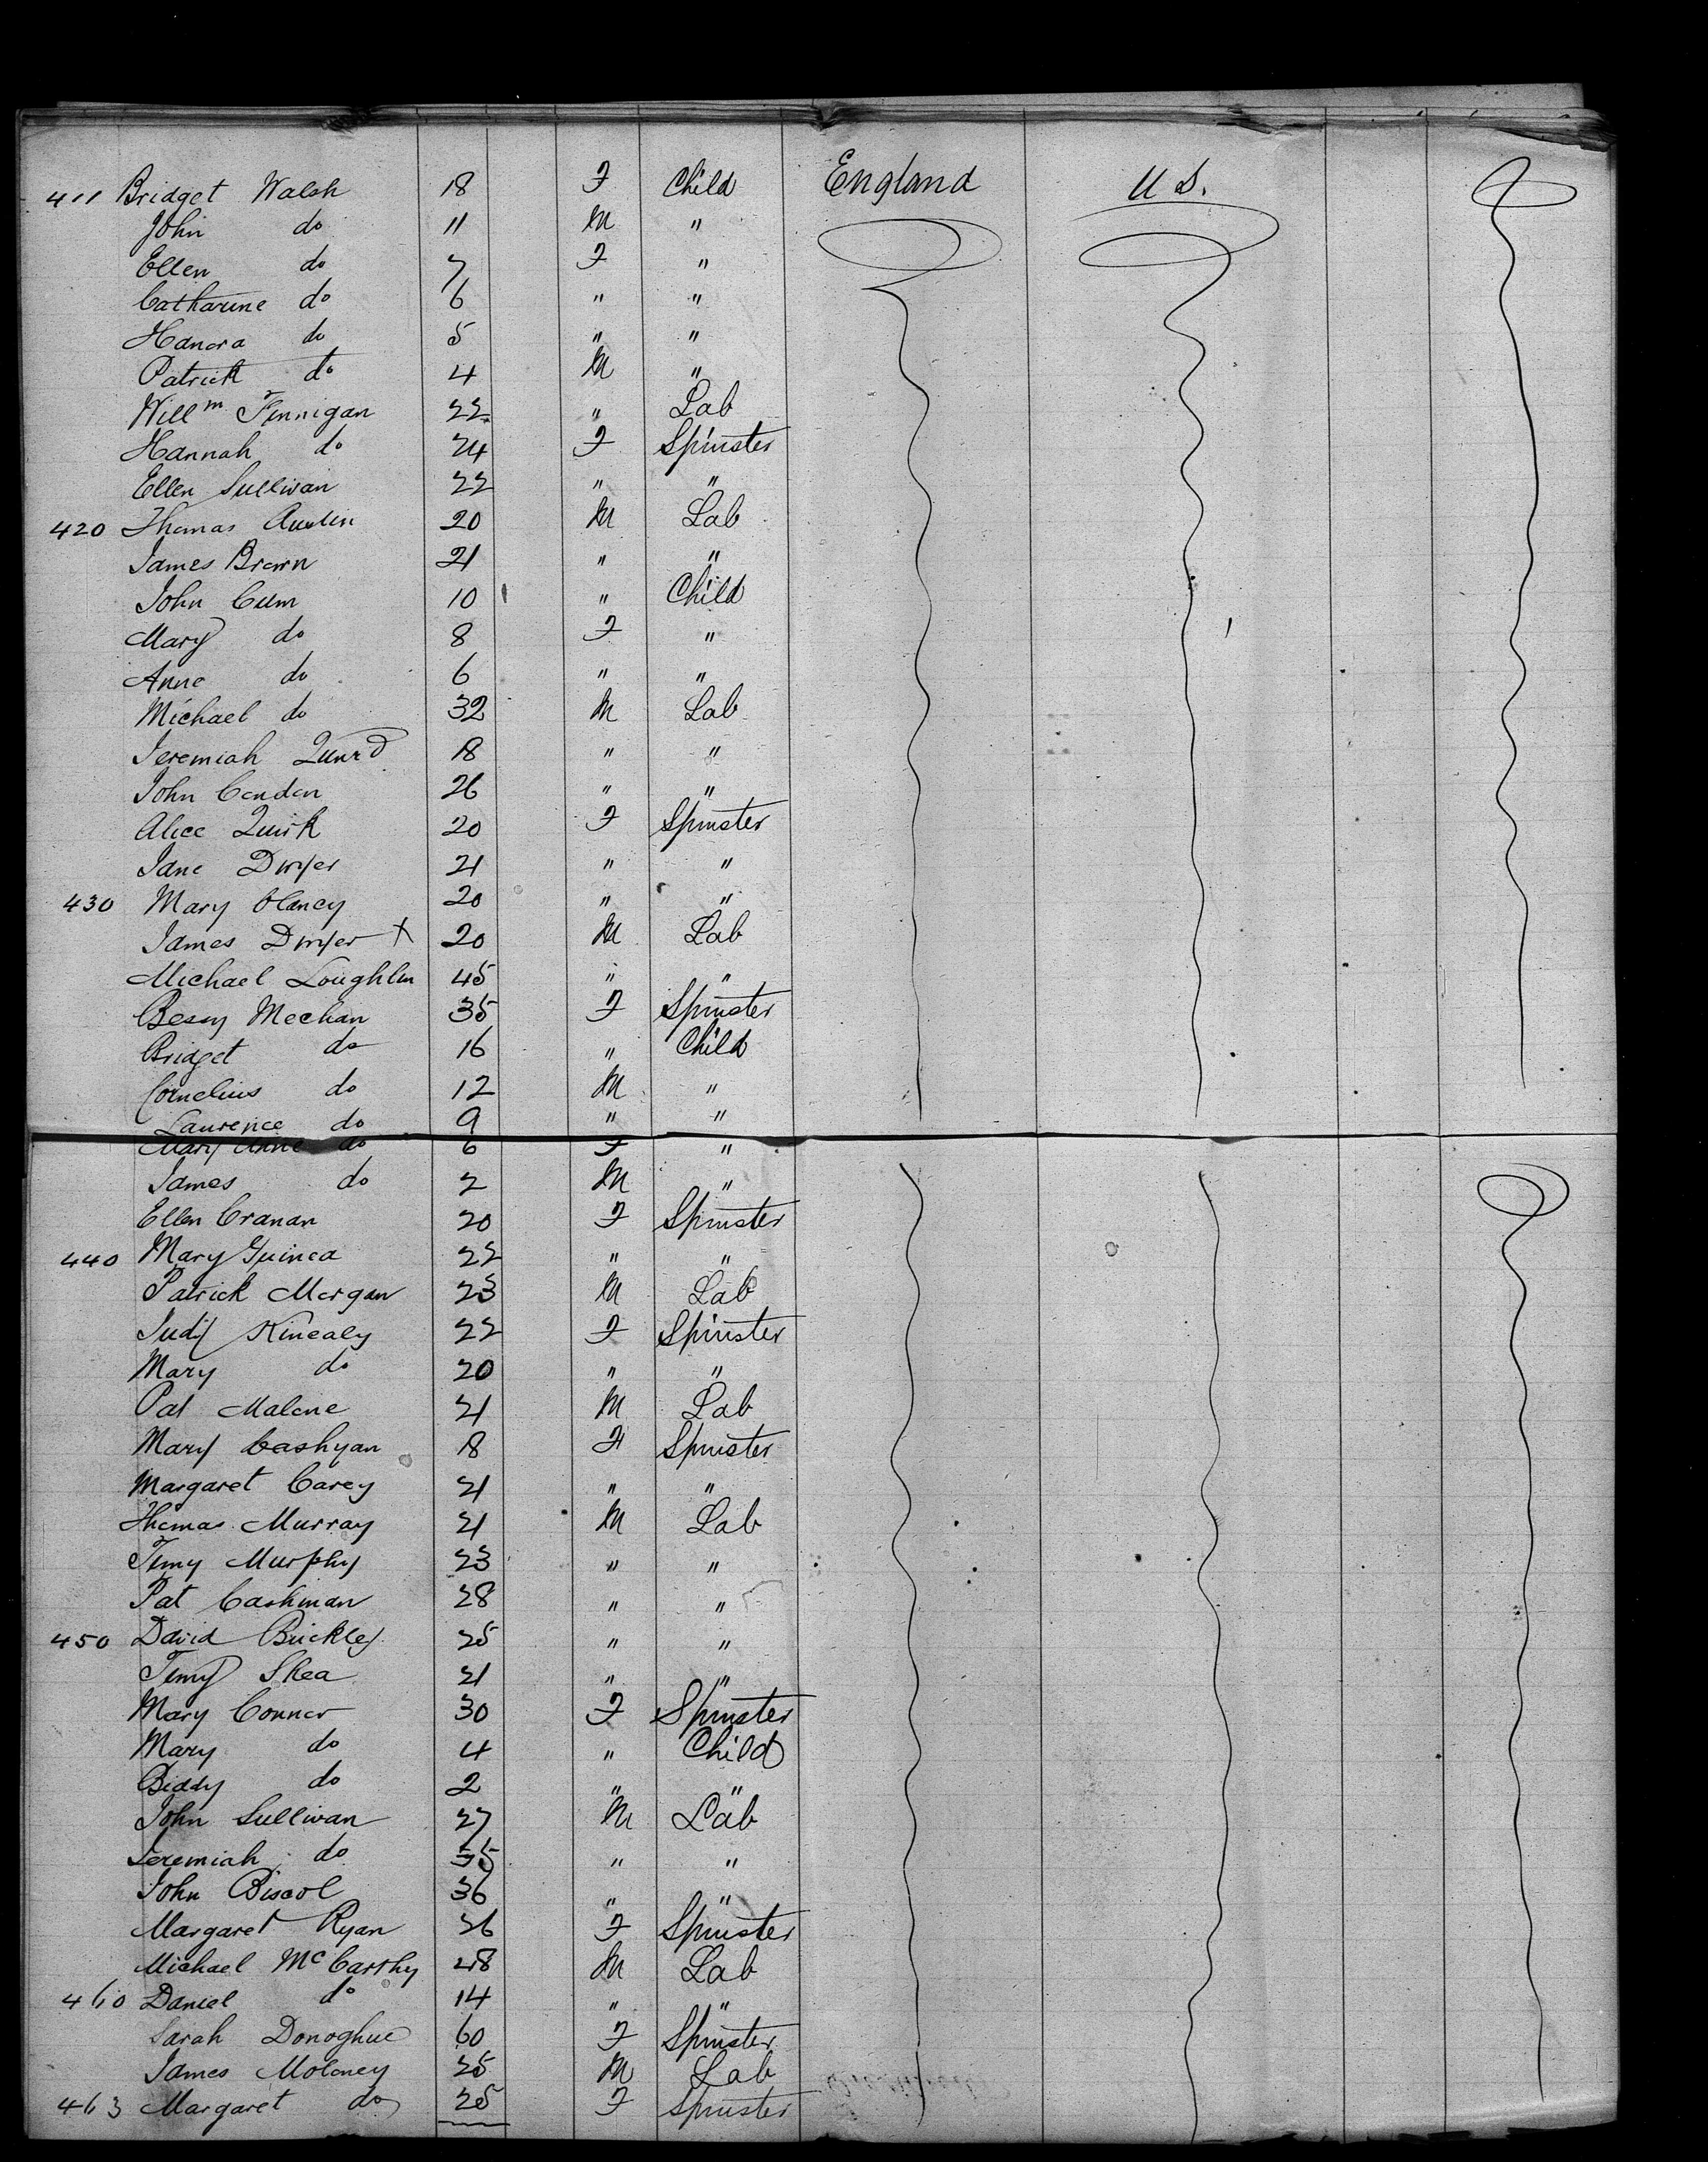 411 Bridget Walsh 18 F Child England U S.
John do 11 M "
Ellen do 7 F "
Catharine do 6 " "
Hanora do 5 " "
Patrick do 4 M "
Will^m Finnigan 22 " Lab
Hannah do 24 F Spinster
Ellen Sullivan 22 " "
420 Thomas Austin 20 M Lab
James Brown 21 " "
John Cum 10 " Child
Mary do 8 F "
Anne do 6 " "
Michael do 32 M Lab
Jeremiah 18 " "
John Condon 26 " "
Alice Quirk 20 F Spinster
Jane Dwyer 21 " "
430 Mary Clancy 20 " "
James Dwyer X 20 M Lab
Michael Loughlin 45 " "
Bessy Meehan 35 F Spinster
Bridget do 16 " Child
Cornelius do 12 M "
Laurence do 9 " "
Mary Anne do 6 F "
James do 2 M "
Ellen Cranan 20 F Spinster
440 Mary Guinea 22 " "
Patrick Morgan 23 M Lab
Judy Kinealy 22 F Spinster
Mary do 20 " "
Pat Malone 21 M Lab
Mary Cashyan 18 F Spinster
Margaret Carey 21 " "
Thomas Murray 21 M Lab
Timy Murphy 23 " "
Pat Cashman 28 " "
450 David Buckley 25 " "
Timy Shea 21 " "
Mary Connor 30 F Spinster
Mary do 4 " Child
Biddy do 2 " "
John Sullivan 27 M Lab
Jeremiah do 35 " "
John 36 " "
Margaret Ryan 26 F Spinster
Michael McCarthy 48 M Lab
460 Daniel do 14 " "
Sarah Donoghue 60 F Spinster
James Moloney 25 M Lab
463 Margaret do 25 F Spinster